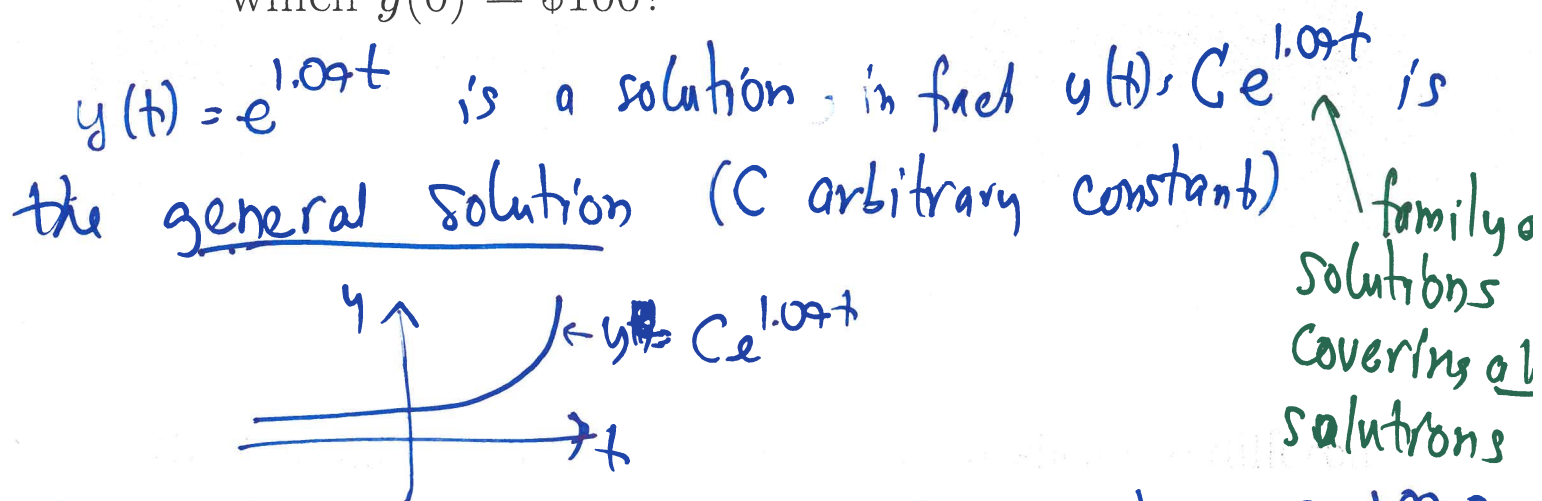 which y(0) = $100?
y(t) = e^1.09t is a solution, in fact y(t) = Ce^1.09t is
the general solution (C arbitrary constant)
family o
solutions
covering al
solutions
y
← y = Ce^1.09t
t